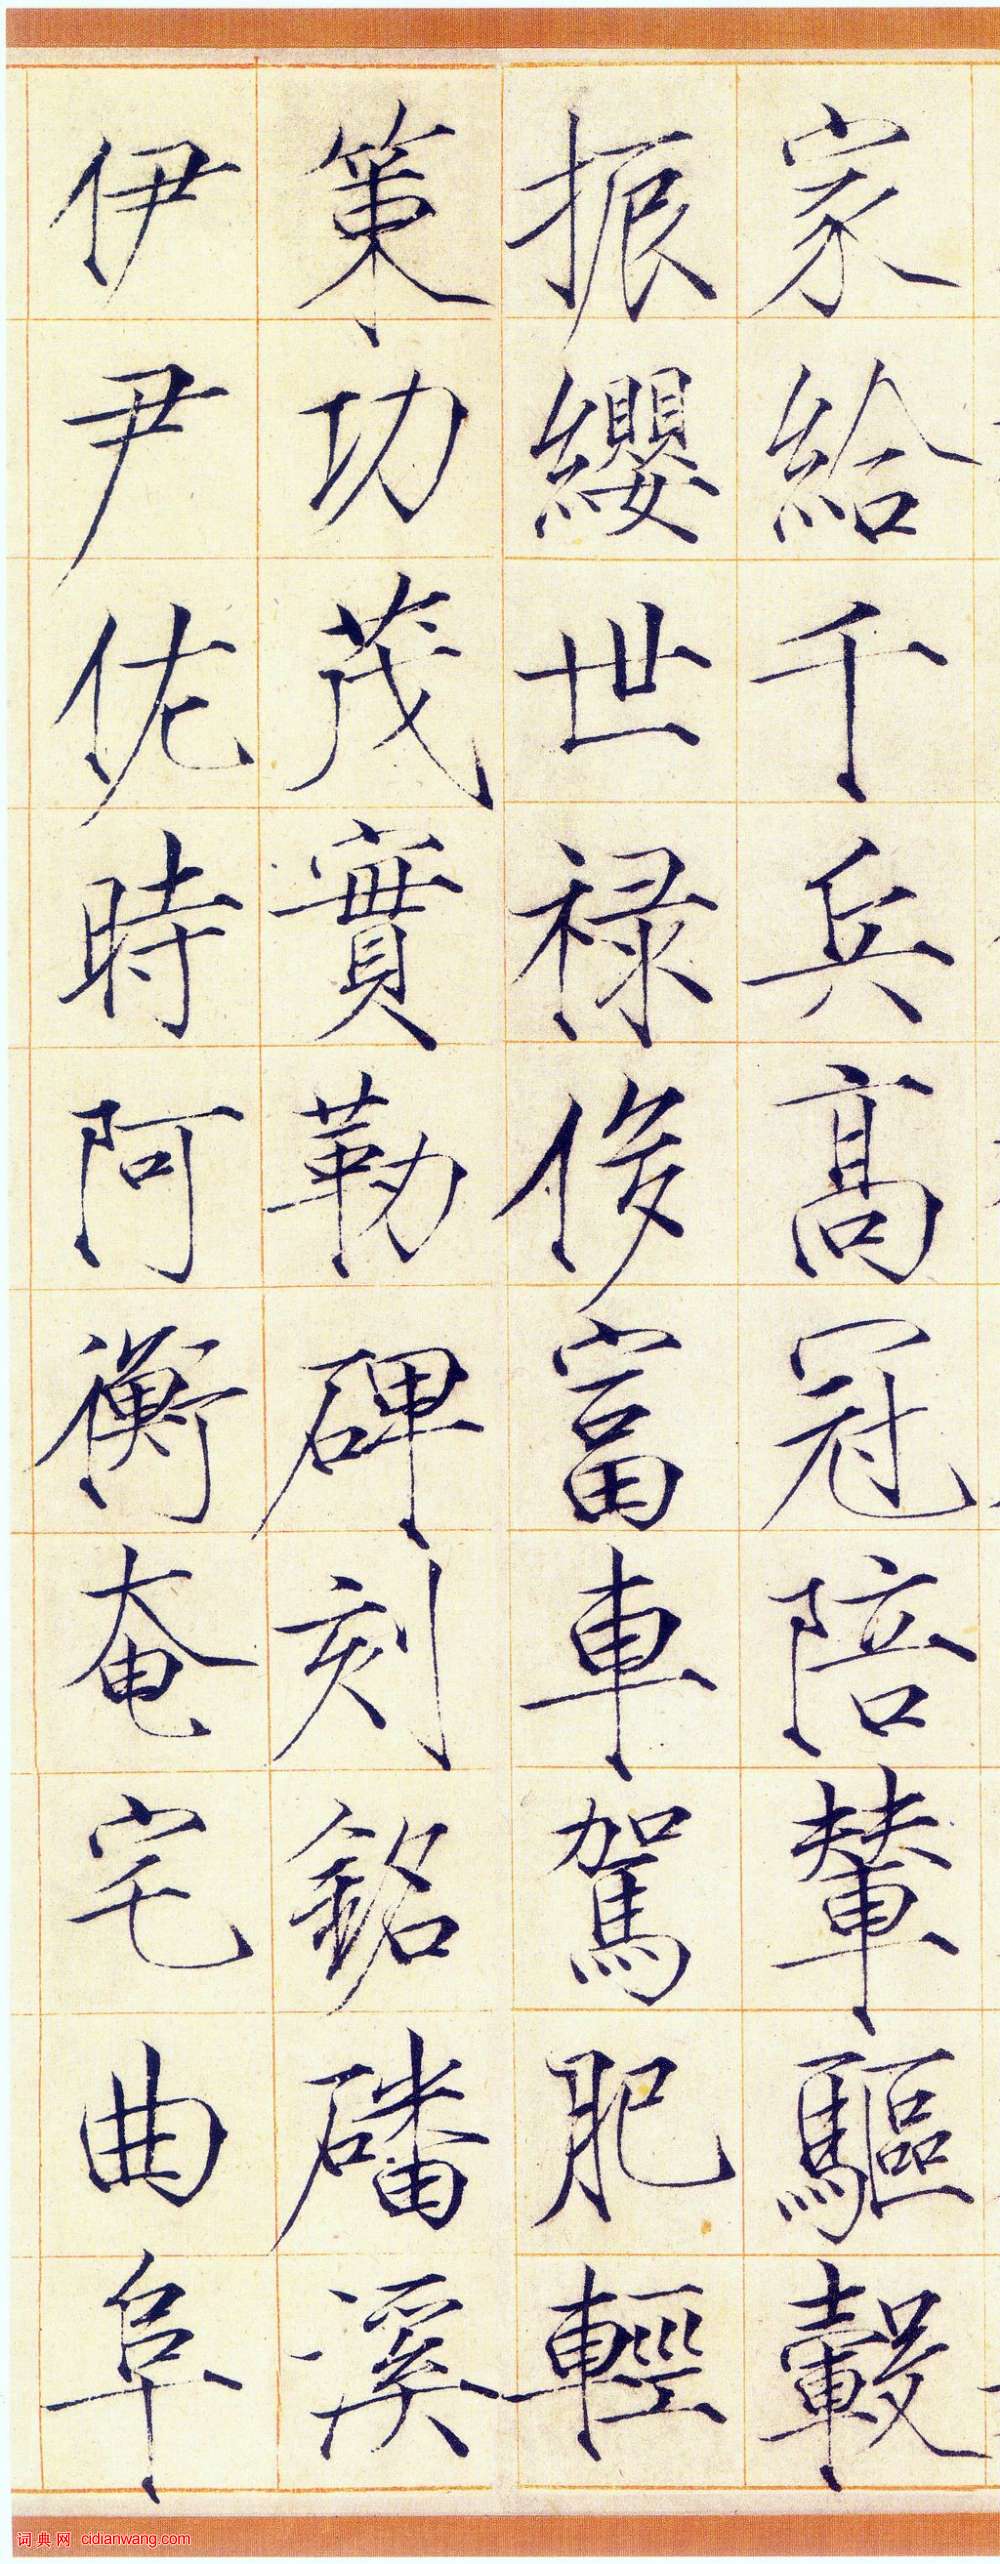 家給千兵高冠陪輦驅轂
振纓世禄侈富車駕肥輕
策功茂實勒碑刻銘磻溪
伊尹佐時阿衡奄宅曲阜
词典网 cidianwang.com